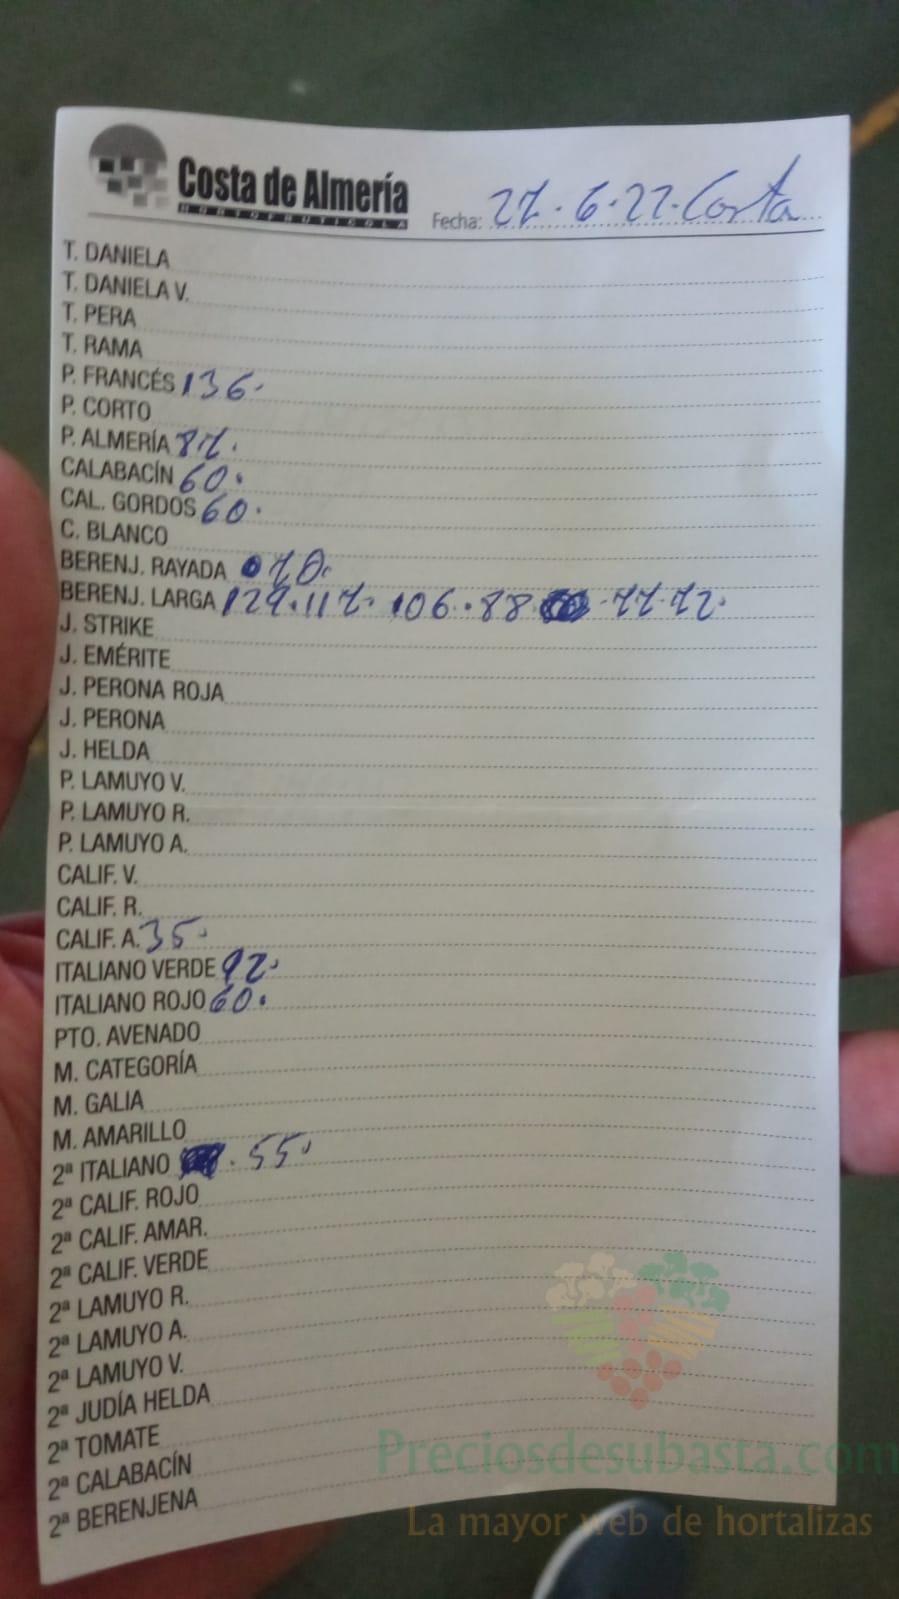 Costa de Almería
HORTOFRUTICOLA
Fecha: 27.6.22. Costa
T. DANIELA
T. DANIELA V.
T. PERA
T. RAMA
P. FRANCÉS 136.
P. CORTO
P. ALMERÍA 87.
CALABACÍN 60.
CAL. GORDOS 60.
C. BLANCO
BERENJ. RAYADA 70.
BERENJ. LARGA 129. 117. 106. 88 . 77. 72.
J. STRIKE
J. EMÉRITE
J. PERONA ROJA
J. PERONA
J. HELDA
P. LAMUYO V.
P. LAMUYO R.
P. LAMUYO A.
CALIF. V.
CALIF. R.
CALIF. A. 35.
ITALIANO VERDE 92.
ITALIANO ROJO 60.
PTO. AVENADO
M. CATEGORÍA
M. GALIA
M. AMARILLO
2ª ITALIANO . 55.
2ª CALIF. ROJO
2ª CALIF. AMAR.
2ª CALIF. VERDE
2ª LAMUYO R.
2ª LAMUYO A.
2ª LAMUYO V.
2ª JUDÍA HELDA
2ª TOMATE
2ª CALABACÍN
2ª BERENJENA
Preciosdesubasta.com
La mayor web de hortalizas